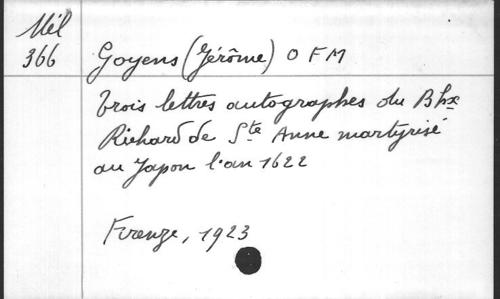 Mél
366
Goyens (Jérôme) O F M
Trois lettres autographes du Bhx
Richard de Ste Anne martyrisé
au Japon l'an 1622
Firenze, 1923